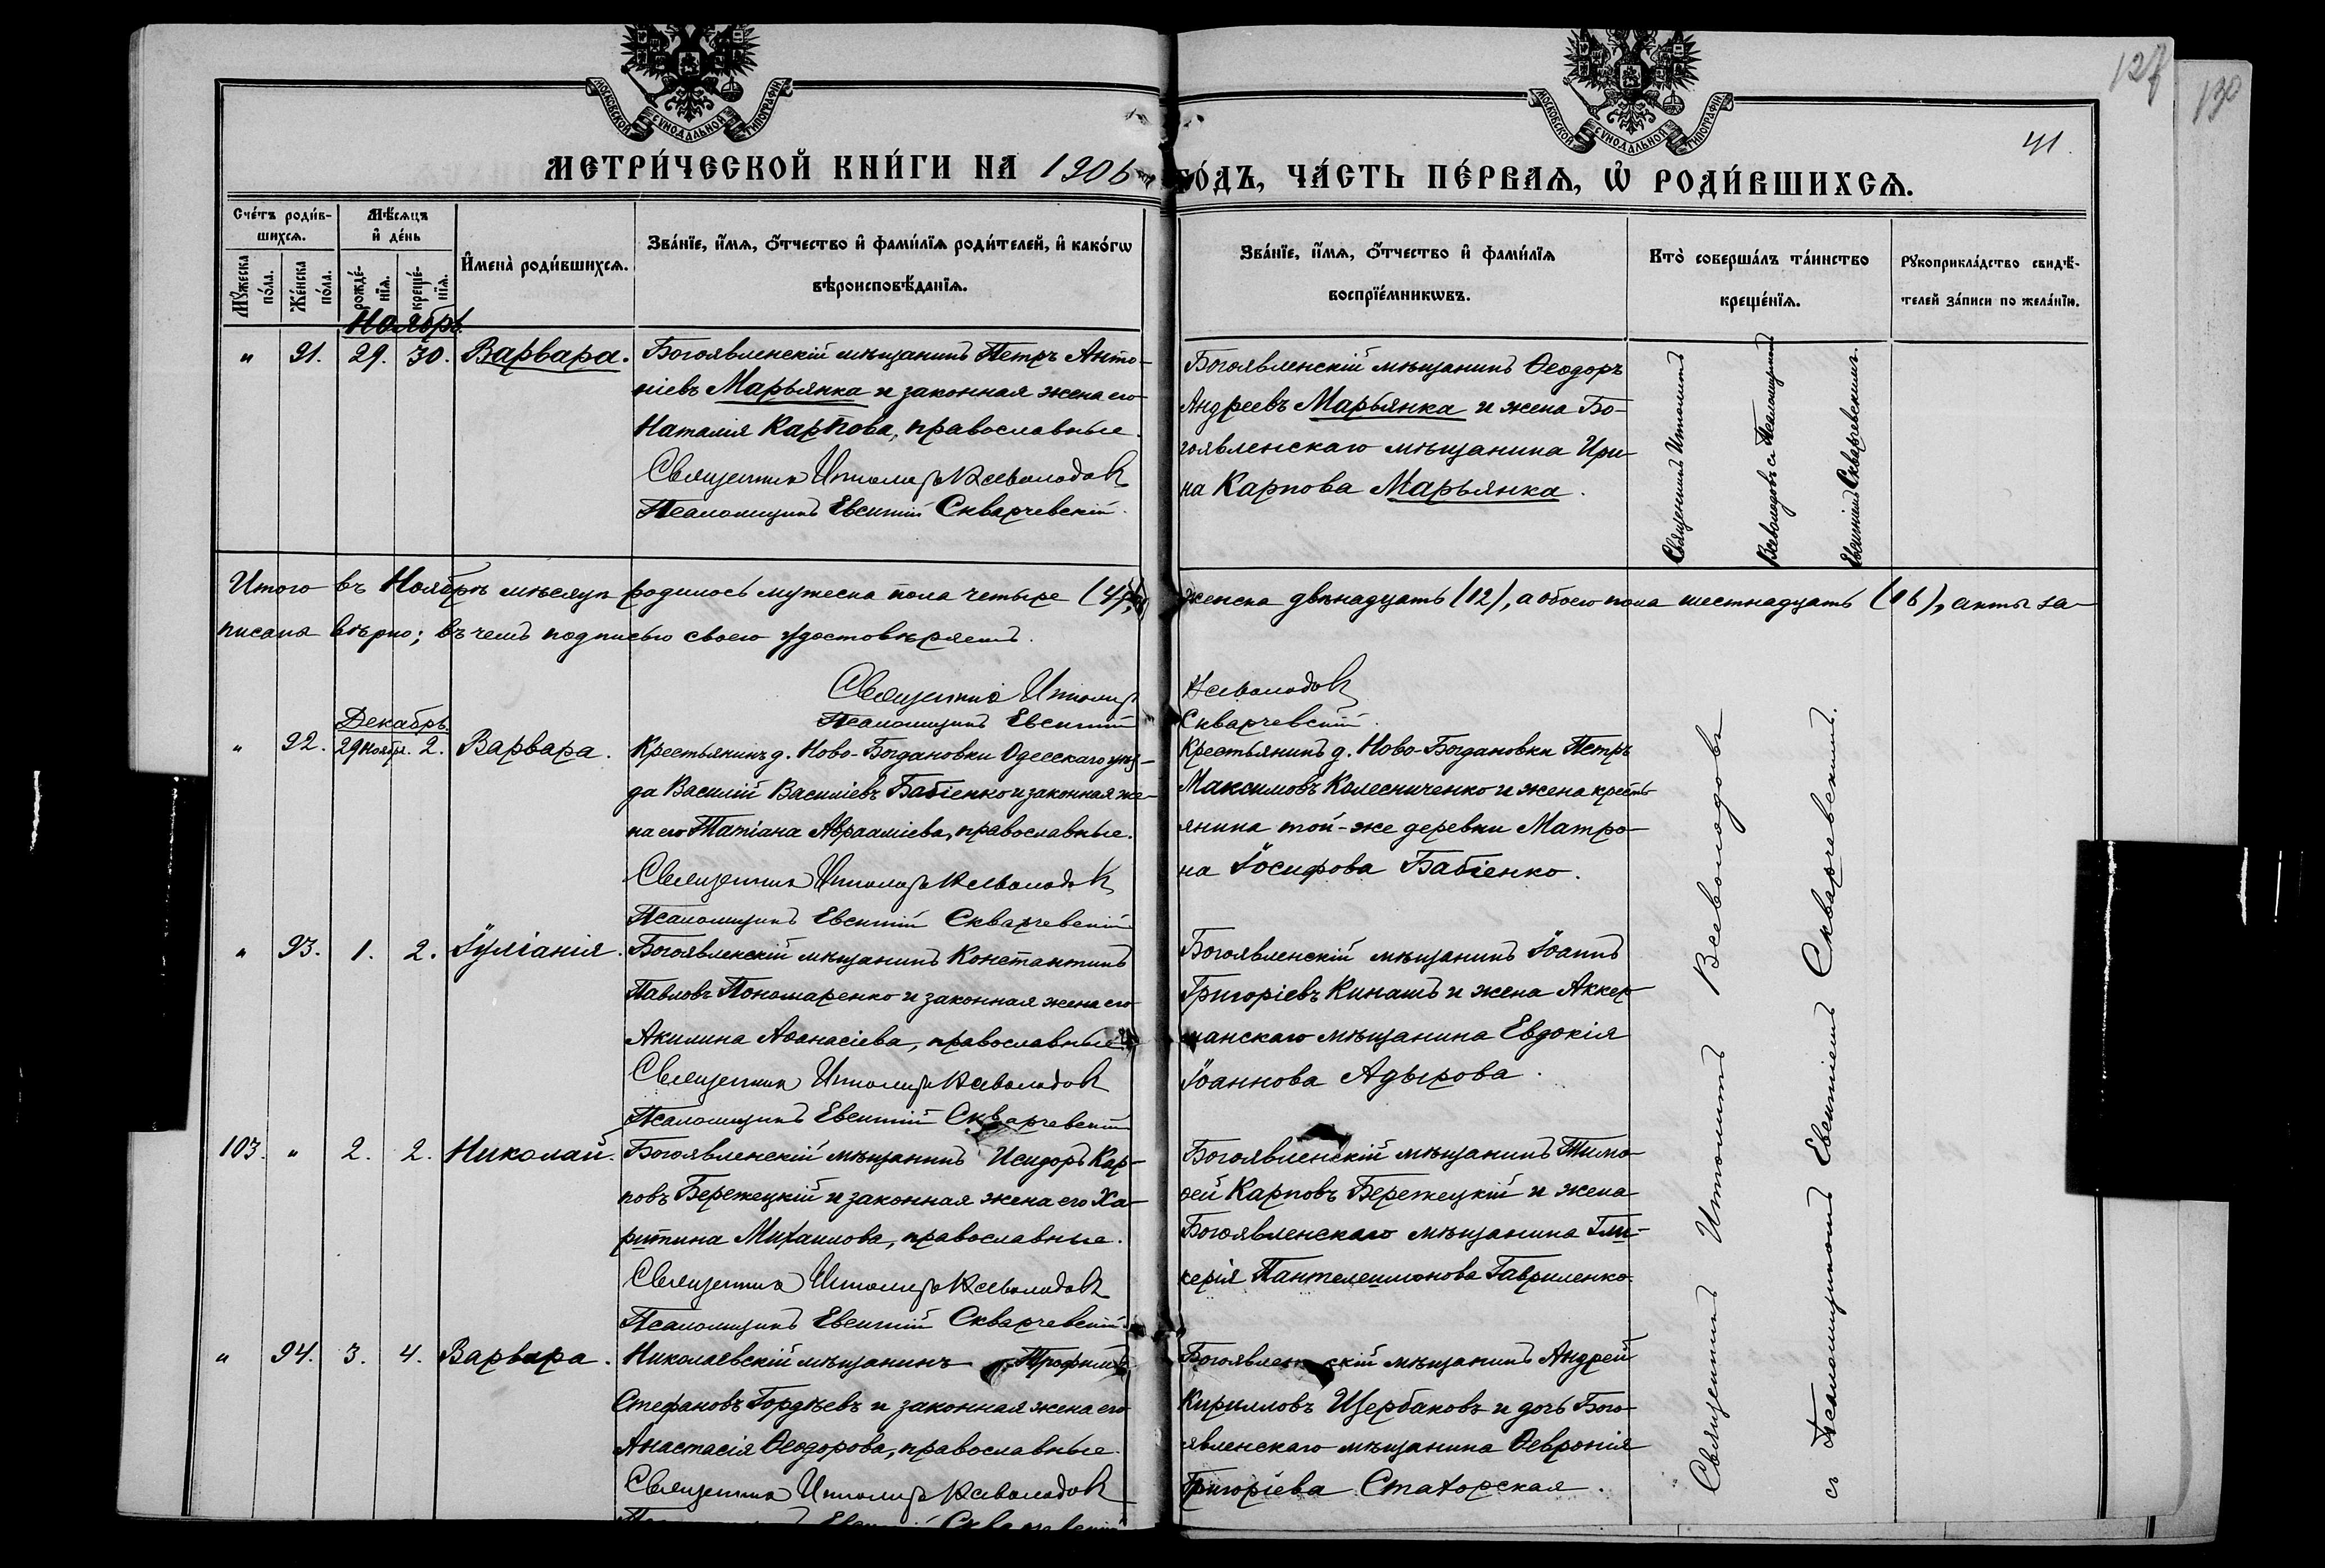 127
130
41.
МОСКОВСКОЙ СѴНОДАЛЬНОЙ ТИПОГРАФІИ.
МОСКОВСКОЙ СѴНОДАЛЬНОЙ ТИПОГРАФІИ.
МЕТРИ́ЧЕСКОЙ КНИ́ГИ НА 1906 ГО́ДЪ, ЧА́СТЬ ПЕ́РВАѦ, Ѡ҆ РОДИ́ВШИХСѦ.
Сче́тъ роди́в-
шихсѧ.
Мꙋ́жеска по́ла.
Же́нска по́ла.
Мѣ́сѧцъ
и҆ де́нь
рожде́-
нїѧ.
креще́-
нїѧ.
И҆мена̀ роди́вшихсѧ.
Зва́нїе, и҆́мѧ, ѻ҆́тчество и҆ фами́лїѧ роди́телей, и҆ како́гѡ
вѣроисповѣ́данїѧ.
Зва́нїе, и҆́мѧ, ѻ҆́тчество и҆ фами́лїѧ
воспрїе́мникѡвъ.
Кто̀ соверша́лъ та́инство
креще́нїѧ.
Рꙋкоприкла́дство свидѣ́-
телей за́писи по жела́нїю.
Ноябрь.
" 91. 29. 30. Варвара. Богоявленскій мѣщанинъ Петръ Анто-
ніевъ Марьянка и законная жена его
Наталія Карпова, православные.
Священникъ Ипполитъ Всеволодовъ
Псаломщикъ Евсигній Скварчевскій.
Богоявленскій мѣщанинъ Ѳеодоръ
Андреевъ Марьянка и жена Бо-
гоявленскаго мѣщанина Ири-
на Карпова Марьянка.
Священникъ Ипполитъ
Всеволодовъ съ Псаломщикомъ
Евсигніемъ Скварчевскимъ.
Итого въ Ноябрѣ мѣсяцѣ родилось мужеска пола четыре (4), женска двѣнадцать (12), а обоего пола шестнадцать (16), акты за-
писаны вѣрно; въ чемъ подписью своею удостовѣряемъ.
Священникъ Ипполитъ Всеволодовъ
Псаломщикъ Евсигній Скварчевскій.
Декабрь.
" 92. 29 Ноября. 2. Варвара. Крестьянинъ д. Ново-Богдановки Одесскаго уѣз-
да Василій Василіевъ Бабіенко и законная же-
на его Татіана Авраамiева, православные.
Священникъ Ипполитъ Всеволодовъ
Псаломщикъ Евсигній Скварчевскій
Крестьянинъ д. Ново-Богдановки Петръ
Максимовъ Колесниченко и жена кресть-
янина той-же деревни Матро-
на Іосифова Бабіенко.
" 93. 1. 2. Іуліанія. Богоявленскій мѣщанинъ Константинъ
Павловъ Пономаренко и законная жена его
Акилина Аѳанасіева, православные.
Священникъ Ипполитъ Всеволодовъ
Псаломщикъ Евсигній Скварчевскій
Богоявленскій мѣщанинъ Іоаннъ
Григоріевъ Кинашъ и жена Аккер-
манскаго мѣщанина Евдокія
Іоаннова Адырова.
103. " 2. 2. Николай. Богоявленскій мѣщанинъ Исидоръ Кар-
повъ Бережецкій и законная жена его Ха-
ритина Михаилова, православные.
Священникъ Ипполитъ Всеволодовъ
Псаломщикъ Евсигній Скварчевскій
Богоявленскій мѣщанинъ Тимо-
ѳей Карповъ Бережецкій и жена
Богоявленскаго мѣщанина Гли-
керія Пантелеимонова Гавриленко.
" 94. 3. 4. Варвара. Николаевскій мѣщанинъ Трофимъ
Стефановъ Гордѣевъ и законная жена его
Анастасія Ѳеодорова, православные.
Священникъ Ипполитъ Всеволодовъ
Богоявленскій мѣщанинъ Андрей
Кирилловъ Щербаковъ и дочь Бого-
явленскаго мѣщанина Ѳевронія
Григоріева Статорская.
Священникъ Ипполитъ Всеволодовъ
съ Псаломщикомъ Евсигніемъ Скварчевскимъ.